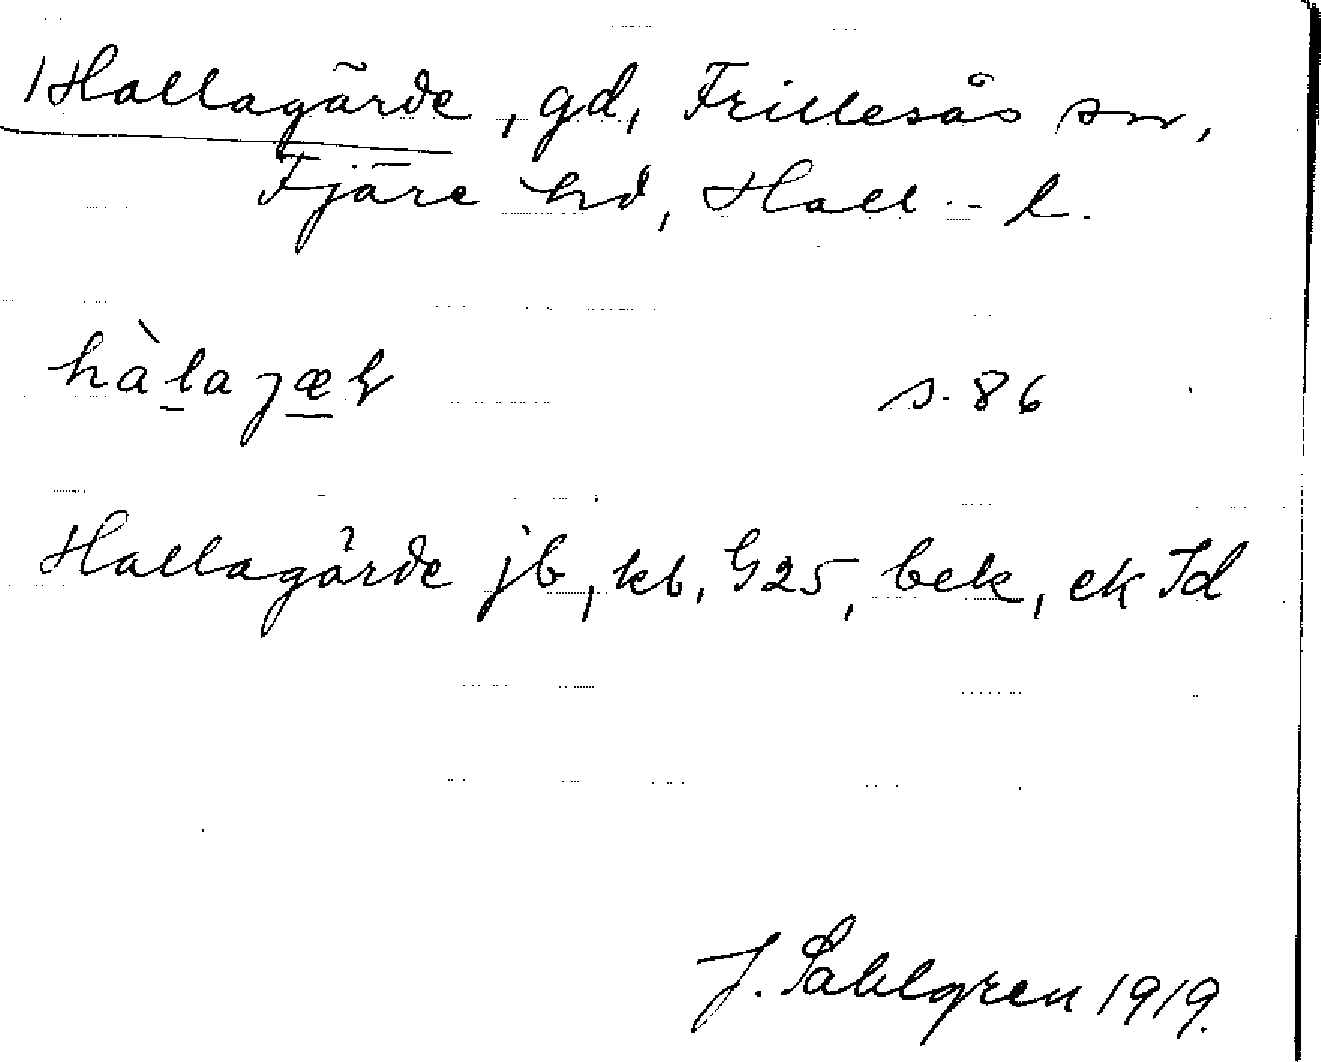 Hallagärde, gd, Frillesås sn,
Fjäre hd, Hall. l.
hàla jæɽ s. 86
Hallagärde jb, kb, G25, bek, ek Id
J. Sahlgren 1919.